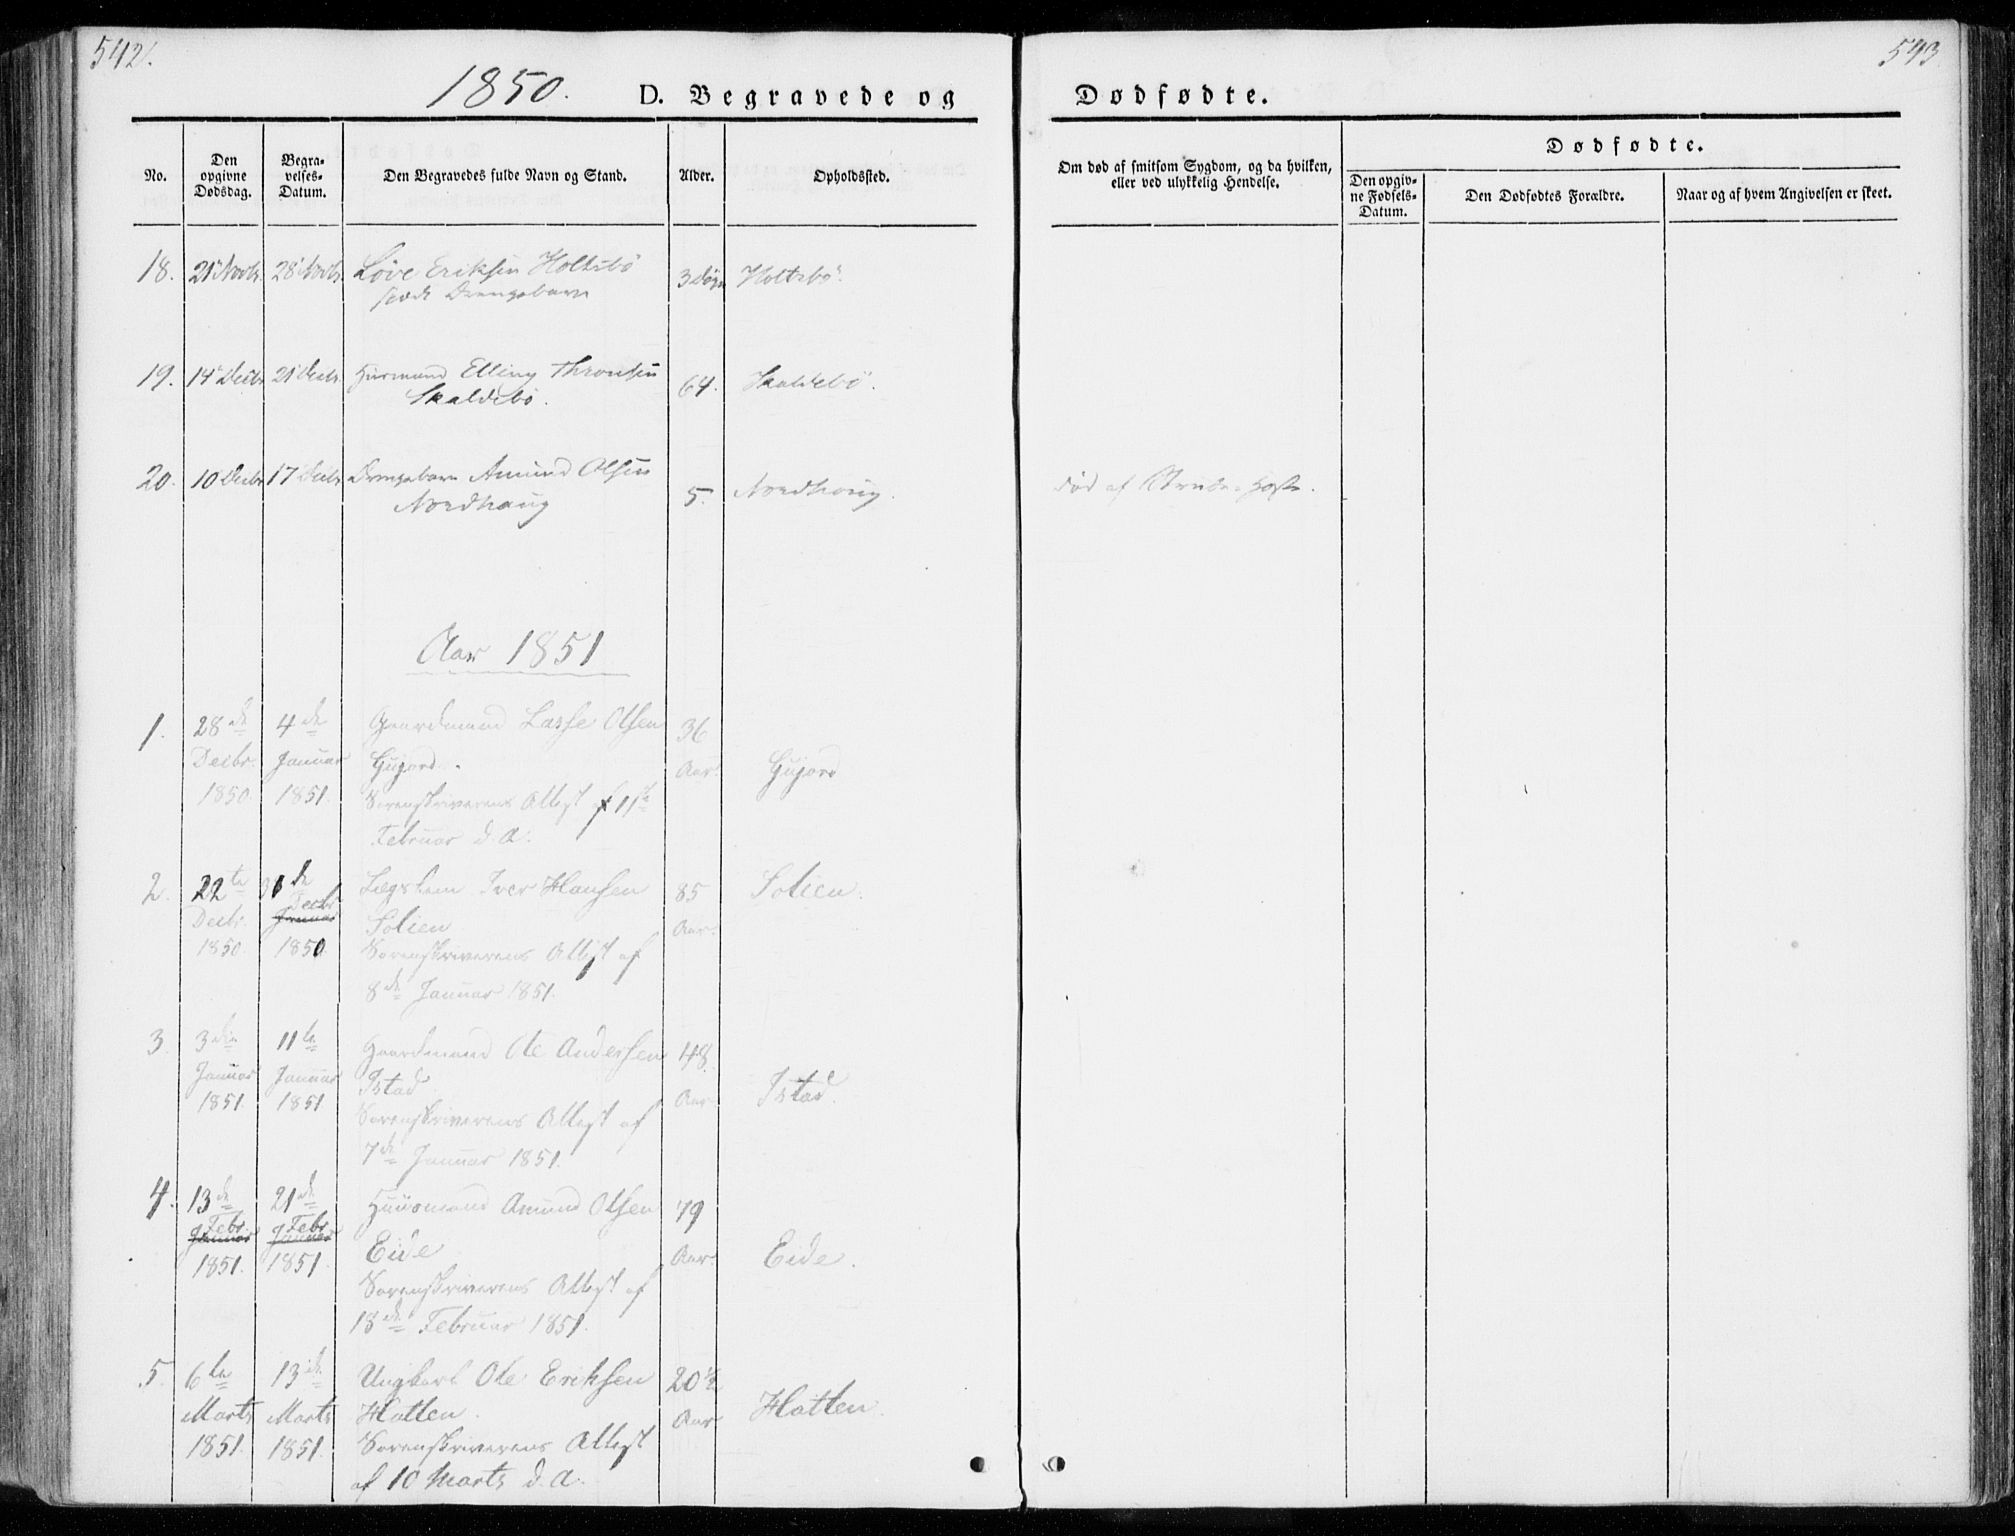 542.
543
1850.
D. Begravede og
Dødfødte.
No.
Den opgivne Dødsdag.
Begravelses-Datum.
Den Begravedes fulde Navn og Stand.
Alder.
Opholdssted.
Om død af smitsom Sygdom, og da hvilken,
eller ved ulykkelig Hendelse.
Dødfødte.
Den opgivne Fødsels-Datum.
Den Dødfødtes Forældre.
Naar og af hvem Angivelsen er skeet.
18. 21 Novbr 28 Novbr Love Eriksen Holtebø 3 Døgn Holtebø.
spædt Drengebarn
19. 14 Decbr 21 Decbr. Huusmand Elling Thronsen 64. Skaldebø.
Skaldebø.
20. 10 Decbr 17 Decbr Drengebarn Amund Olsen 5. Nordhaug. død af Strube-Hoste.
Nordhaug
Aar 1851
1. 28de 4de Gaardmand Lasse Olsen 36
Decbr. Januar Gujord. Aar. Gujord
1850. 1851. Sorenskriverens Attest af 11te
Februar d. A.
2. 22te 31de Lægslem Iver Hansen 85 Solien.
Decbr. Decbr Januar Solien Aar.
1850. 1850. Sorenskriverens Attest af
8de Januar 1851.
3. 3die 11te Gaardmand Ole Andersen 48.
Januar Januar Istad Aar Istad.
1851. 1851. Sorenskriverens Attest af
7de Januar 1851.
4. 13de 21de Huusmand Amund Olsen 79
Febr. Januar Febr. Januar Eide Aar. Eide.
1851. 1851. Sorenskriverens Attest af
18de Februar 1851.
5. 6te 13de Ungkarl Ole Eriksen 20 1/2
Marts Marts Hatten. Aar Hatten.
1851. 1851. Sorenskriverens Attest
af 10 Marts d. A.